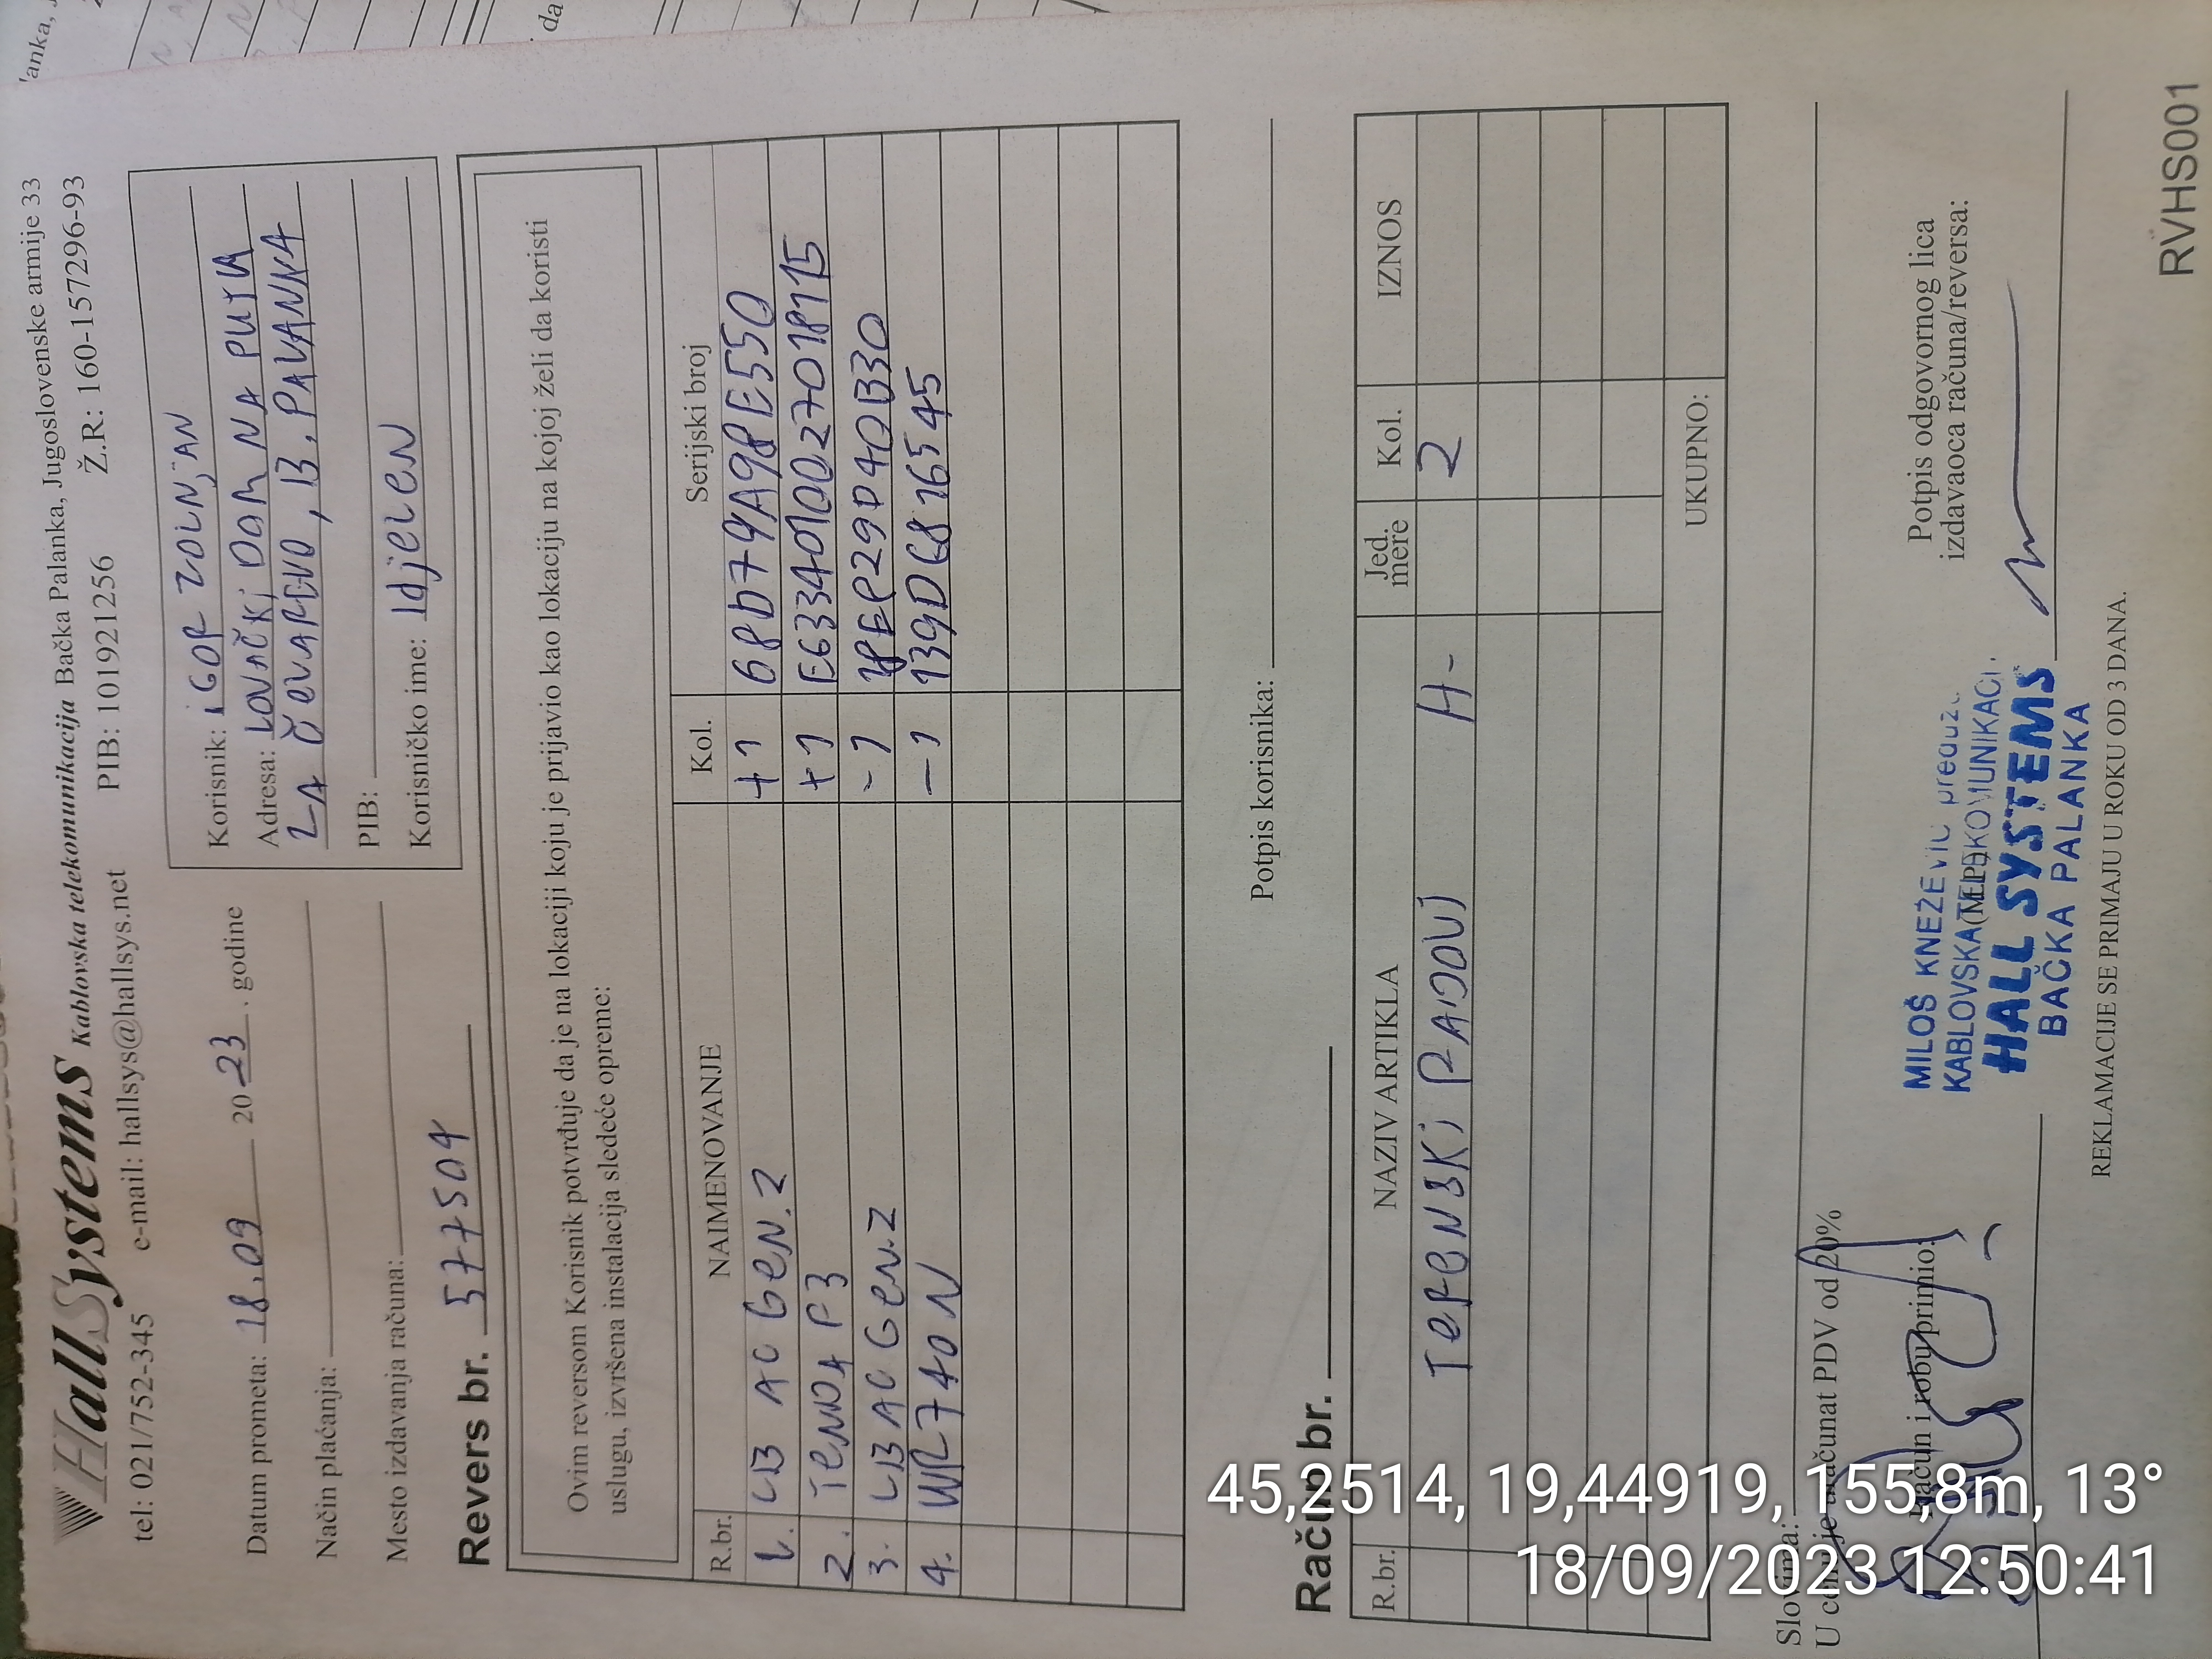 HallSystems Kablovska telekomunikacija Bačka Palanka, Jugoslovenske armije 33
tel: 021/752-345 e-mail: hallsys@hallsys.net PIB: 101921256 Ž.R.: 160-157296-93
Datum prometa: 18.09 20 23. godine
Način plaćanja:
Mesto izdavanja računa:
Korisnik: IGOR ZOLNJAN
Adresa: LOVAČKI DOM NA PUTU
ZA ČELAREVO, B. PALANKA
PIB:
Korisničko ime: Idjelen
Revers br. 577504
Ovim reversom Korisnik potvrđuje da je na lokaciji koju je prijavio kao lokaciju na kojoj želi da koristi
uslugu, izvršena instalacija sledeće opreme:
R.br. NAIMENOVANJE Kol. Serijski broj
1. LB AC Gen.2 +1 68D79A98E550
2. TENDA F3 +1 E6334010027018715
3. LB AC Gen.2 -1
4. WR740N -1
Potpis korisnika:
Račun br.
R.br. NAZIV ARTIKLA Jed. mere Kol. IZNOS
TERENSKI RADOVI H- 2
UKUPNO:
Slovima:
U cenu je uračunat PDV od 20%
Račun i robu primio:
(M.P.)
Potpis odgovornog lica
izdavaoca računa/reversa:
MILOŠ KNEŽEVIĆ preduz.
KABLOVSKA TELEKOMUNIKACI
HALL SYSTEMS
BAČKA PALANKA
REKLAMACIJE SE PRIMAJU U ROKU OD 3 DANA.
RVHS001
45,2514, 19,44919, 155,8m, 13°
18/09/2023 12:50:41